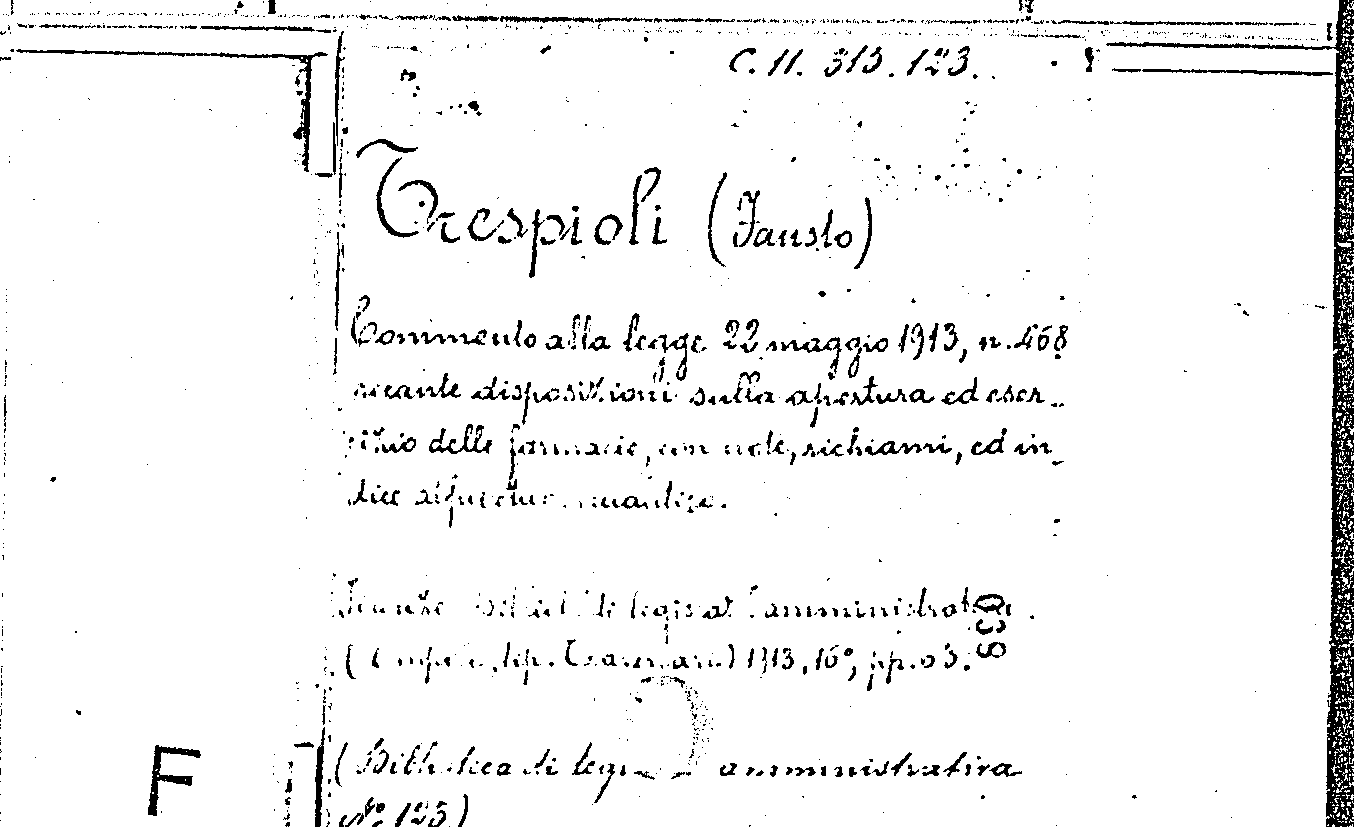 C. 11. 313. 123.
Trespioli (Fausto)
Commento alla legge 22 maggio 1913, n. 468
recante disposizioni sulla apertura ed eser-
cizio delle farmacie, con note, richiami, ed in-
dice
Firenze di legislat amministrativa.
tip. 1913, 16°, pp.
089
(Biblioteca di legis amministrativa
N° 123)
F